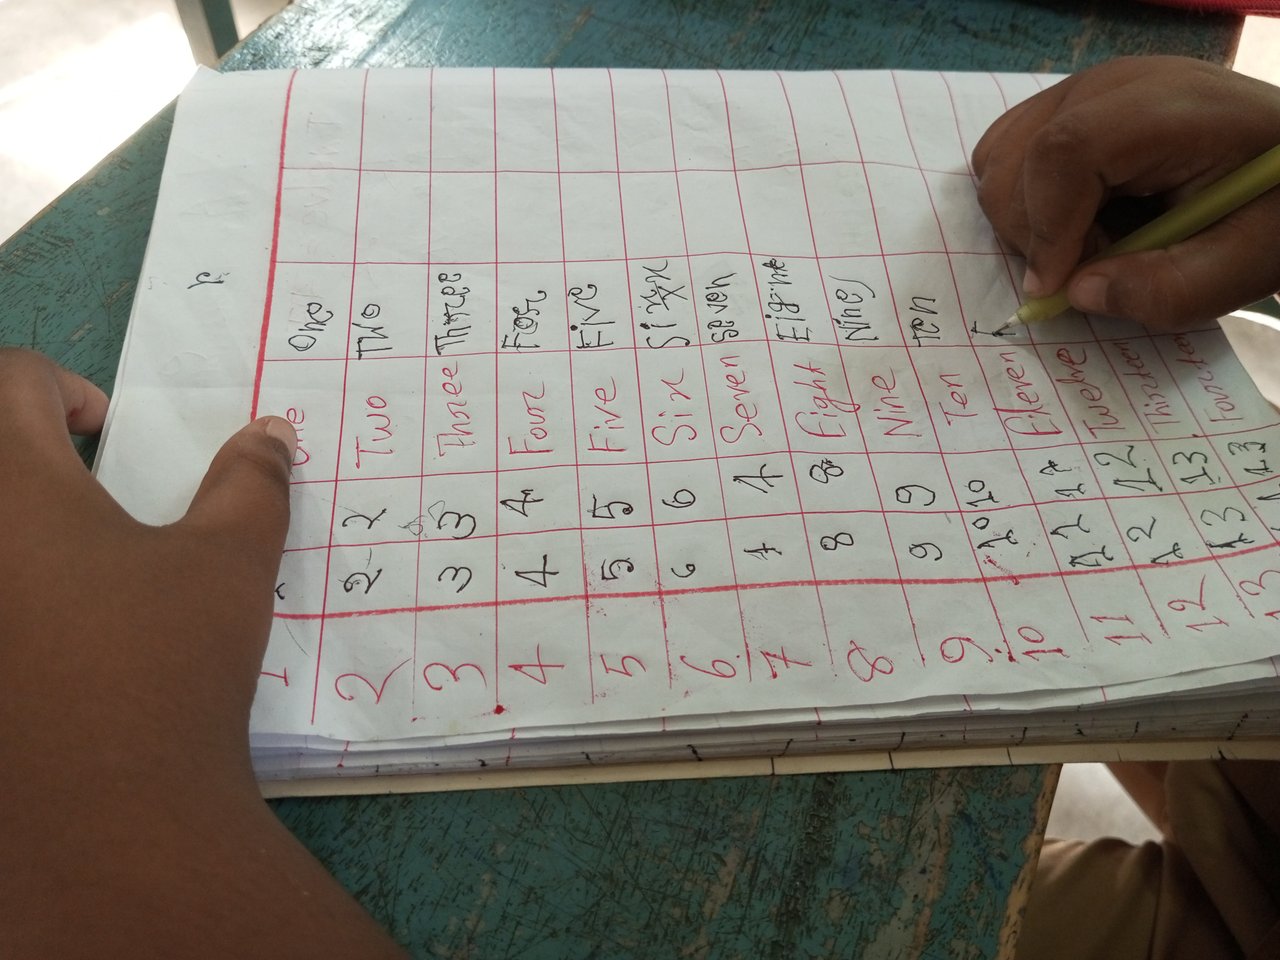 1 One One
2 2 2 Two Two
3 3 3 Three Three
4 4 4 Four For
5 5 5 Five Five
6 6 6 Six Sixx
7 7 7 Seven Seven
8 8 8 Eight
9 9 9 Nine Nine
10 10 10 Ten Ten
11 Eleven
12 12 12 Twelve
13 13 13